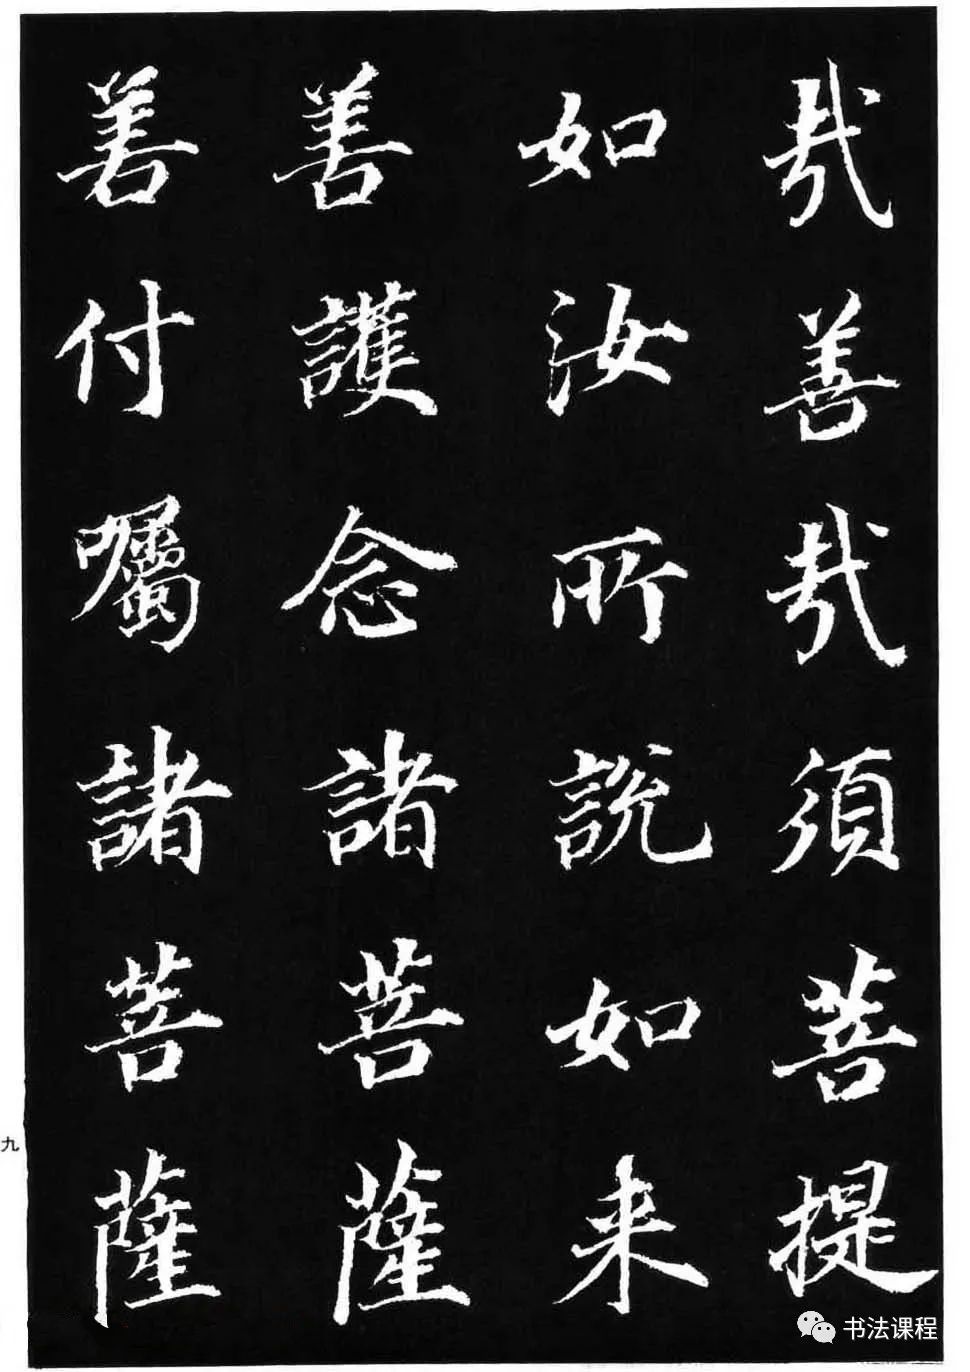 哉善哉須菩提
如汝所說如来
善護念諸菩薩
善付囑諸菩薩
九
书法课程